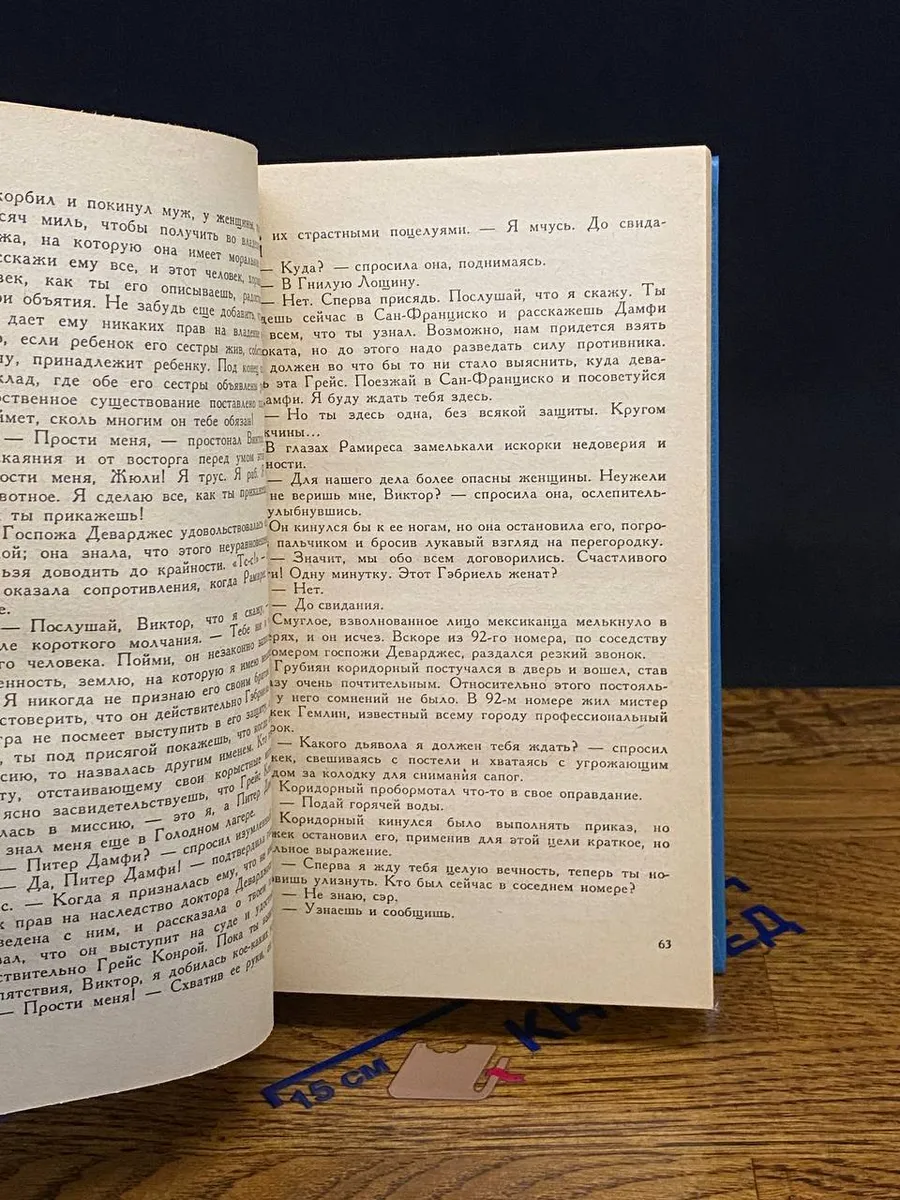 корбил и покинул муж, у женщины,
сяч миль, чтобы получить во
жа, на которую она имеет
сскажи ему все, и этот человек,
век, как ты его описываешь,
ои объятия. Не забудь еще
дает ему никаких прав на
о, если ребенок его сестры жив,
лу, принадлежит ребенку. Под конец
клад, где обе его сестры объявлены
рственное существование поставлено
ймет, сколь многим он тебе обязан!
— Прости меня, — простонал Виктор
каяния и от восторга перед умом
ости меня, Жюли! Я трус. Я раб. Я
вотное. Я сделаю все, как ты
ты прикажешь!
Госпожа Деварджес удовольствовалась
кой; она знала, что этого
льзя доводить до крайности. «Те-с!» —
оказала сопротивления, когда
е.
— Послушай, Виктор, что я скажу, —
ле короткого молчания. — Тебе
го человека. Пойми, он незаконно
енность, землю, на которую я имею
Я никогда не признаю его своим братом
стоверить, что он действительно Гэбриель
тра не посмеет выступить в его защиту
, ты под присягой покажешь, что когда
ссию, то назвалась другим именем. Кто
ту, отстаивающему свои корыстные
ясно засвидетельствуешь, что Грейс
лась в миссию, — это я, а Питер
знал меня еще в Голодном лагере.
— Питер Дамфи? — спросил изумленный
— Да, Питер Дамфи! — подтвердила
с. — Когда я призналась ему, что
х прав на наследство доктора Деварджеса
ведена с ним, и рассказала о твоей
вал, что он выступит на суде и
ствительно Грейс Конрой. Пока ты
пятствия, Виктор, я добилась кое-каких
— Прости меня! — Схватив ее руки,
их страстными поцелуями. — Я мчусь. До свида-
— Куда? — спросила она, поднимаясь.
— В Гнилую Лощину.
— Нет. Сперва присядь. Послушай, что я скажу. Ты
дешь сейчас в Сан-Франциско и расскажешь Дамфи
всем, что ты узнал. Возможно, нам придется взять
оката, но до этого надо разведать силу противника.
должен во что бы то ни стало выяснить, куда дева-
ь эта Грейс. Поезжай в Сан-Франциско и посоветуйся
амфи. Я буду ждать тебя здесь.
— Но ты здесь одна, без всякой защиты. Кругом
жчины...
В глазах Рамиреса замелькали искорки недоверия и
ности.
— Для нашего дела более опасны женщины. Неужели
не веришь мне, Виктор? — спросила она, ослепитель-
улыбнувшись.
Он кинулся бы к ее ногам, но она остановила его, погро-
пальчиком и бросив лукавый взгляд на перегородку.
— Значит, мы обо всем договорились. Счастливого
ти! Одну минутку. Этот Гэбриель женат?
— Нет.
— До свидания.
Смуглое, взволнованное лицо мексиканца мелькнуло в
ерях, и он исчез. Вскоре из 92-го номера, по соседству
омером госпожи Деварджес, раздался резкий звонок.
Грубиян коридорный постучался в дверь и вошел, став
азу очень почтительным. Относительно этого постояль-
у него сомнений не было. В 92-м номере жил мистер
жек Гемлин, известный всему городу профессиональный
рок.
— Какого дьявола я должен тебя ждать? — спросил
жек, свешиваясь с постели и хватаясь с угрожающим
дом за колодку для снимания сапог.
Коридорный пробормотал что-то в свое оправдание.
— Подай горячей воды.
Коридорный кинулся было выполнять приказ, но
жек остановил его, применив для этой цели краткое, но
льное выражение.
— Сперва я жду тебя целую вечность, теперь ты но-
овишь улизнуть. Кто был сейчас в соседнем номере?
— Не знаю, сэр.
— Узнаешь и сообщишь.
63
15 см